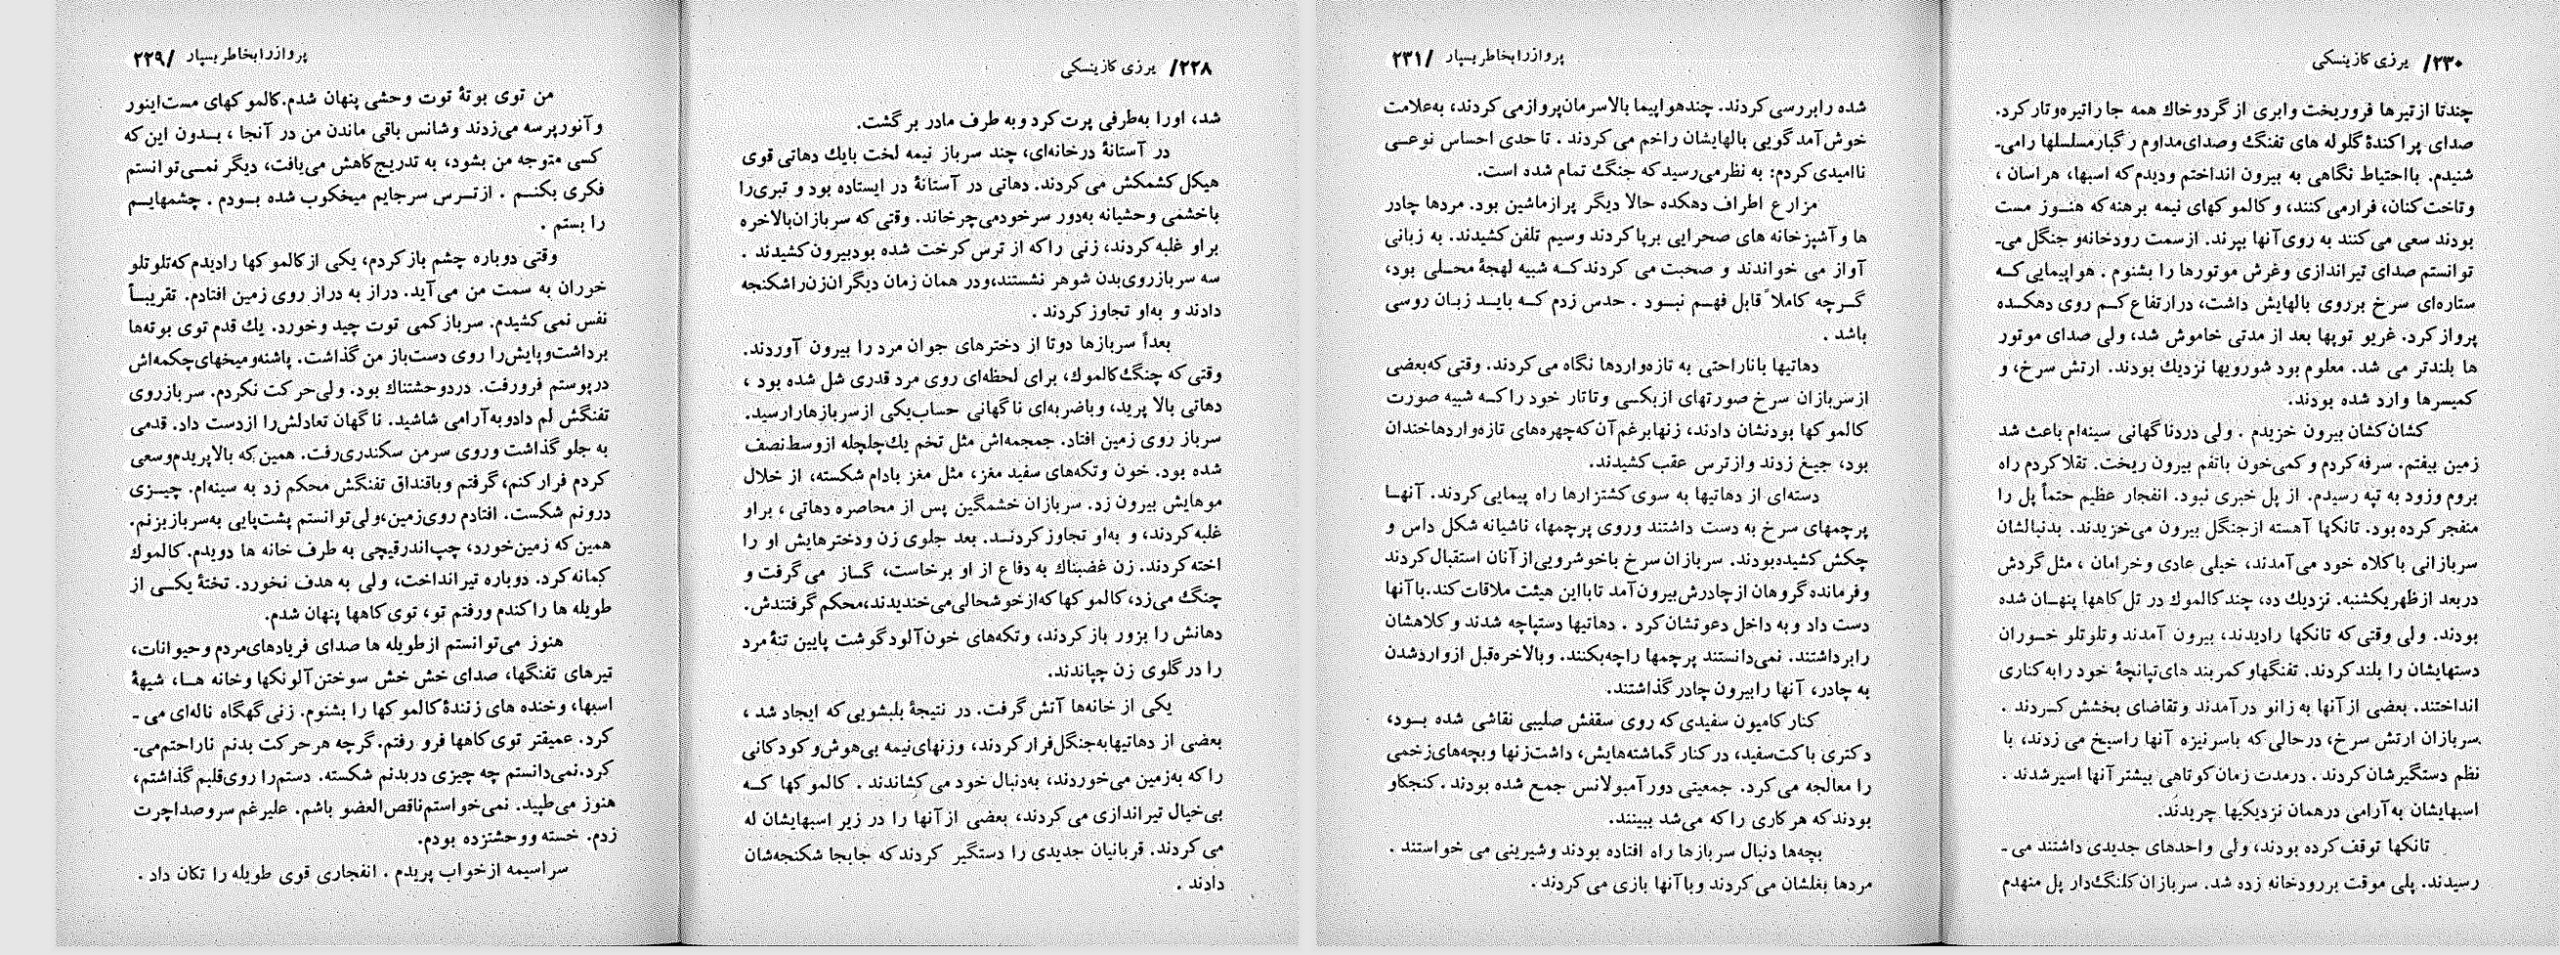 ۲۲۸/ یرزی کازینسکی
شد، اورا به‌طرفی پرت کرد وبه طرف مادر برگشت.
در آستانهٔ درخانه‌ای، چند سرباز نیمه لخت بایك دهاتی قوی
هیکل کشمکش می‌کردند. دهاتی در آستانهٔ در ایستاده بود و تبری‌را
باخشمی وحشیانه به‌دور سرخودمی‌چرخاند. وقتی‌که سربازان‌بالاخره
براو غلبه‌کردند، زنی راکه از ترس کرخت شده بودبیرون کشیدند .
سه سربازروی‌بدن شوهر نشستند،ودر همان زمان دیگران‌زن‌راشکنجه
دادند و به‌او تجاوز کردند .
بعداً سربازها دوتا از دخترهای جوان مرد را بیرون آوردند.
وقتی‌که چنگ‌کالموك، برای لحظه‌ای روی مرد قدری شل شده بود ،
دهاتی بالا پرید، وباضربه‌ای ناگهانی حساب‌یکی ازسربازهارارسید.
سرباز روی زمین افتاد. جمجمه‌اش مثل تخم یك‌چلچله ازوسط‌نصف
شده بود. خون وتکه‌های سفید مغز، مثل مغز بادام شکسته، از خلال
موهایش بیرون زد. سربازان خشمگین پس از محاصره دهاتی ، براو
غلبه‌کردند، و به‌او تجاوز کردنـد. بعد جلوی زن ودخترهایش او را
اخته‌کردند. زن غضبناك به دفاع از او برخاست، گـاز می‌گرفت و
چنگ می‌زد،کالموکها که‌ازخوشحالی‌می‌خندیدند،محکم گرفتندش.
دهانش را بزور بازکردند، وتکه‌های خون‌آلودگوشت پایین تنهٔ مرد
را درگلوی زن چپاندند.
یکی از خانه‌ها آتش گرفت. در نتیجهٔ بلبشویی‌که ایجاد شد ،
بعضی از دهاتیهابه‌جنگل‌فرارکردند، وزنهای‌نیمه بی‌هوش‌وکودکانی
راکه به‌زمین می‌خوردند، به‌دنبال خود می‌کشاندند . کالموکها کــه
بی‌خیال تیراندازی می‌کردند، بعضی ازآنها را در زیر اسبهایشان له
می‌کردند. قربانیان جدیدی را دستگیر کردندکه جابجا شکنجه‌شان
دادند .
پروازرابخاطربسپار /۲۲۹
من توی بوتهٔ توت وحشی پنهان شدم.کالموکهای مست‌اینور
وآنورپرسه می‌زدند وشانس باقی ماندن من در آنجا ، بــدون این‌که
کسی متوجه من بشود، به تدریج‌کاهش می‌یافت، دیگر نمــی‌توانستم
فکری بکنــم . ازتــرس سرجایم میخکوب شده بــودم . چشمهایــم
را بستم .
وقتی دوباره چشم بازکردم، یکی ازکالموکها رادیدم‌که‌تلوتلو
خوران به سمت من می‌آید. دراز به دراز روی زمین افتادم. تقریبــاً
نفس نمی‌کشیدم. سربازکمی توت چید وخورد. یك قدم توی بوته‌ها
برداشت‌وپایش‌را روی دست‌باز من گذاشت. پاشنه‌ومیخهای‌چکمه‌اش
درپوستم فرورفت. دردوحشتناك بود. ولی‌حرکت نکردم. سربازروی
تفنگش لم دادوبه‌آرامی شاشید. ناگهان تعادلش‌را ازدست داد. قدمی
به جلو گذاشت وروی سرمن سکندری‌رفت. همین‌که بالاپریدم‌وسعی
کردم فرارکنم، گرفتم وباقنداق تفنگش محکم زد به سینه‌ام. چیــزی
درونم شکست. افتادم روی‌زمین،ولی‌توانستم پشت‌پایی به‌سربازبزنم.
همین‌که زمین‌خورد، چپ‌اندرقیچی به طرف خانه ها دویدم.کالموك
کمانه‌کرد. دوباره تیرانداخت، ولی به هدف نخورد. تختهٔ یکــی از
طویله ها راکندم ورفتم تو، توی‌کاهها پنهان شدم.
هنوز می‌توانستم ازطویله ها صدای فریادهای‌مردم وحیوانات،
تیرهای تفنگها، صدای خش خش سوختن‌آلونکها وخانه هــا، شیههٔ
اسبها، وخنده های زنندهٔ‌کالموکها را بشنوم. زنی‌گهگاه ناله‌ای می ـ
کرد. عمیقتر توی‌کاهها فرو رفتم.گرچه هرحرکت بدنم ناراحتم‌می‌ـ
کرد.نمی‌دانستم چه چیزی دربدنم شکسته. دستم‌را روی‌قلبم گذاشتم،
هنوز می‌طپید. نمی‌خواستم‌ناقص‌العضو باشم. علیرغم سروصداچرت
زدم. خسته ووحشتزده بودم.
سراسیمه ازخواب پریدم . انفجاری قوی طویله را تکان داد .
۲۳۰/ یرزی کازینسکی
چندتا ازتیرها فروریخت وابری ازگردوخاك همه جا راتیره‌وتارکرد.
صدای پراکندهٔ گلوله های تفنگ وصدای‌مداوم رگبارمسلسلها رامی‌ـ
شنیدم. بااحتیاط نگاهی به بیرون انداختم ودیدم‌که اسبها، هراسان ،
وتاخت‌کنان، فرارمی‌کنند، وکالموکهای نیمه برهنه‌که هنــوز مست
بودند سعی می‌کنند به روی‌آنها بپرند. ازسمت رودخانه‌و جنگل می‌ـ
توانستم صدای تیراندازی وغرش موتورها را بشنوم . هواپیمایی‌کــه
ستاره‌ای سرخ برروی بالهایش داشت، درارتفاع‌کــم روی دهکــده
پرواز کرد. غریو توپها بعد از مدتی خاموش شد، ولی صدای موتور
ها بلندتر می شد. معلوم بود شورویها نزدیك بودند. ارتش سرخ، و
کمیسرها وارد شده بودند.
کشان‌کشان بیرون خزیدم . ولی دردناگهانی سینه‌ام باعث شد
زمین بیفتم. سرفه‌کردم وکمی‌خون باتفم بیرون ریخت. تقلاکردم راه
بروم وزود به تپه رسیدم. از پل خبری نبود. انفجار عظیم حتماً پل را
منفجرکرده‌بود. تانکها آهسته ازجنگل بیرون می‌خزیدند. بدنبالشان
سربازانی باکلاه خود می‌آمدند، خیلی عادی وخرامان ، مثل‌گردش
دربعد ازظهریکشنبه. نزدیك ده، چندکالموك در تل‌کاهها پنهــان شده
بودند. ولی وقتی‌که تانکها رادیدند، بیرون آمدند وتلوتلو خــوران
دستهایشان را بلندکردند. تفنگهاوکمربند های‌تپانچهٔ خود رابه‌کناری
انداختند. بعضی ازآنها به زانو درآمدند وتقاضای بخشش‌کــردند .
سربازان ارتش سرخ، درحالی‌که باسرنیزه آنها راسیخ می زدند، با
نظم دستگیرشان‌کردند . درمدت زمان‌کوتاهی بیشترآنها اسیرشدند .
اسبهایشان به‌آرامی درهمان نزدیکیها چریدند.
تانکها توقف‌کرده بودند، ولی واحدهای جدیدی داشتند می ـ
رسیدند. پلی موقت بررودخانه زده شد. سربازان‌کلنگ‌دار پل منهدم
پروازرابخاطربسپار /۲۳۱
شده رابررسی‌کردند. چندهواپیما بالاسرمان‌پروازمی‌کردند، به‌علامت
خوش‌آمدگویی بالهایشان راخم می‌کردند . تاحدی احساس نوعــی
ناامیدی کردم: به نظرمی‌رسیدکه جنگ تمام شده است.
مزارع اطراف دهکده حالا دیگر پرازماشین بود. مردها چادر
ها وآشپزخانه های صحرایی برپاکردند وسیم تلفن‌کشیدند. به زبانی
آواز می خواندند و صحبت می کردندکــه شبیه لهجهٔ محــلی بود،
گــرچه کاملاً قابل فهــم نبــود . حدس زدم کــه بایــد زبــان روسی
باشد .
دهاتیها باناراحتی به تازه‌واردها نگاه می‌کردند. وقتی‌که‌بعضی
ازسربازان سرخ صورتهای ازبکسی وتاتار خود راکــه شبیه صورت
کالموکها بودنشان دادند، زنهابرغم‌آن‌که‌چهره‌های تازه‌واردهاخندان
بود، جیــغ زدند وازترس عقب‌کشیدند.
دسته‌ای از دهاتیها به سوی‌کشتزارها راه پیمایی‌کردند. آنهــا
پرچمهای سرخ به دست داشتند وروی پرچمها، ناشیانه شکل داس و
چکش کشیده‌بودند. سربازان سرخ باخوشرویی‌ازآنان استقبال کردند
وفرمانده‌گروهان ازچادرش‌بیرون‌آمد تابااین هیئت ملاقات کند.باآنها
دست داد وبه داخل دعوتشان‌کرد . دهاتیها دستپاچه شدند وکلاهشان
رابرداشتند. نمی‌دانستند پرچمها راچه‌بکنند. وبالاخره‌قبل ازواردشدن
به چادر، آنها رابیرون چادرگذاشتند.
کنارکامیون سفیدی‌که روی سقفش صلیبی نقاشی شده بــود،
دکتری باکت‌سفید، درکنارگماشته‌هایش، داشت‌زنها وبچه‌های‌زخمی
را معالجه می‌کرد. جمعیتی دورآمبولانس جمع شده بودند .کنجکاو
بودندکه هرکاری راکه می‌شد ببینند.
بچه‌ها دنبال سربازها راه افتاده بودند وشیرینی می خواستند .
مردها بغلشان می‌کردند وباآنها بازی می‌کردند .